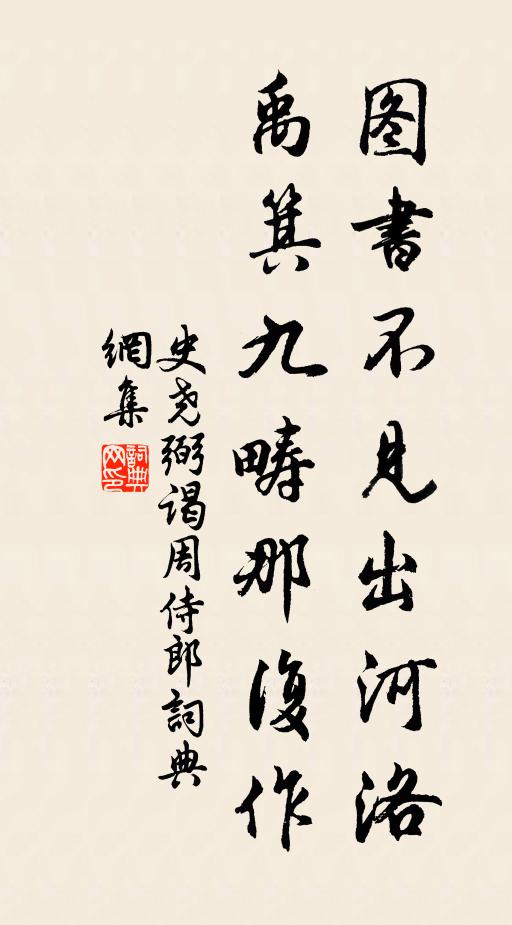 图書不見出河洛
禹箕九疇那復作
史尧弼谒周侍郎詞典
網集
詞典網印